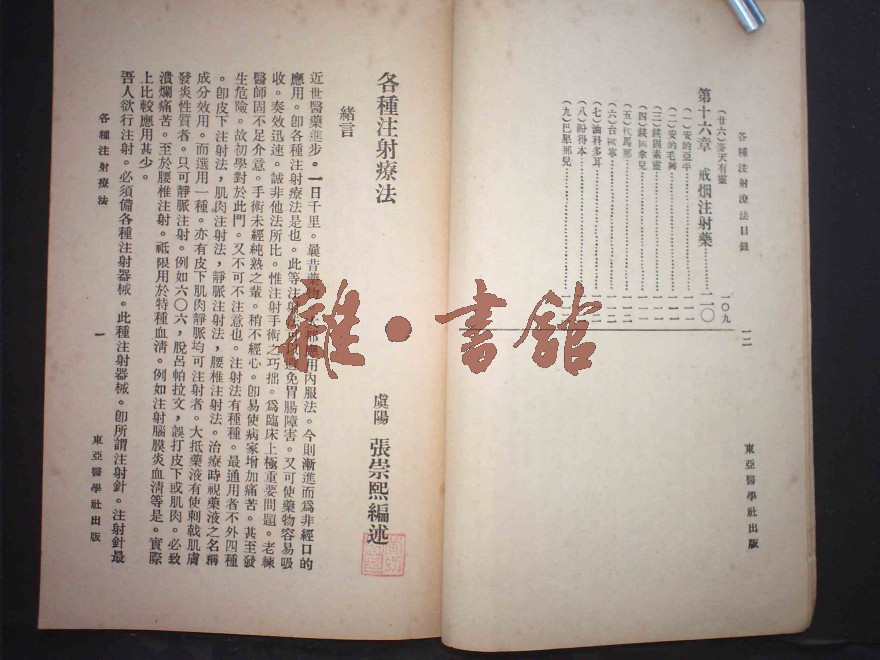 各種注射療法目錄
一二
(廿六)麥天有靈……一〇九
第十六章 戒烟注射藥……一一〇
(一)安的亞平
(二)安的毛岡
(三)鎂固素靈
(四)鎂固拿兒
(五)代馬那
(六)台爾寧
(七)油科多耳
(八)盼得本
(九)巴畢那兒
東亞醫學社出版
各種注射療法
虞陽 張崇熙編述
緒言
近世醫藥進步。一日千里。曩昔藥物大都應用內服法。今則漸進而爲非經口的
應用。卽各種注射療法是也。此等注射法可以避免胃腸障害。又可使藥物容易吸
收。奏效迅速。誠非他法所比。惟注射手術之巧拙。爲臨床上極重要問題。老練
醫師固不足介意。手術未經純熟之輩。稍不經心。卽易使病家增加痛苦。甚至發
生危險。故初學對於此門。又不可不注意也。注射法有種種。最通用者不外四種
。卽皮下注射法，肌肉注射法，靜脈注射法，腰椎注射法。治療時視藥液之名稱
成分效用。而選用一種。亦有皮下肌肉靜脈均可注射者。大抵藥液有使刺戟肌膚
發炎性質者。只可靜脈注射。例如六〇六，脫呂帕拉文，誤打皮下或肌肉。必致
潰爛痛苦。至於腰椎注射。祇限用於特種血淸。例如注射腦膜炎血淸等是。實際
上比較應用甚少。
吾人欲行注射。必須備各種注射器械。此種注射器械。卽所謂注射針。注射針最
各種注射療法
一
東亞醫學社出版
雜·書館